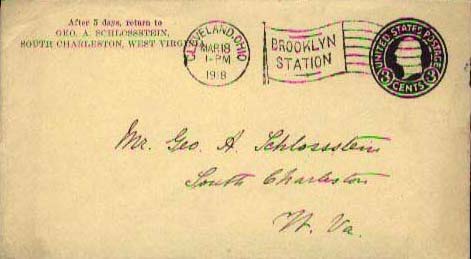 After 5 days, return to
GEO. A. SCHLOSSSTEIN,
SOUTH CHARLESTON, WEST VIRGINIA
CLEVELAND, OHIO
MAR 18
1-PM
1918
BROOKLYN
STATION
UNITED STATES POSTAGE
3 CENTS 3
Mr. Geo. A. Schlossstein
South Charleston
W. Va.